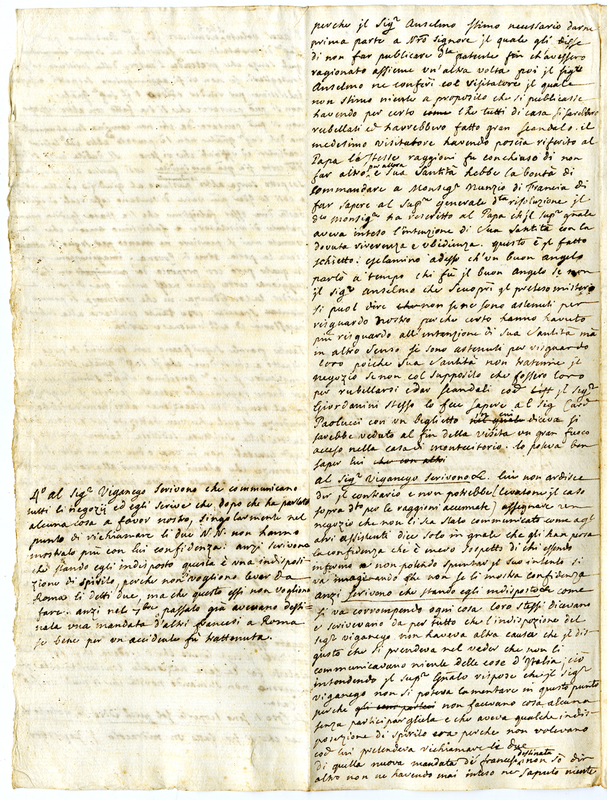 4.º al Sig.r Viganego scrivono che communicano
tutti li negozij ed egli scrive che dopo che ha parlato
alcuna cosa a favor nostro, singolarmente nel
punto di richiamare li due NN. non hanno
mostrato più con lui confidenza. anzi scrivono
che stando egli indisposto questa è una indisposi-
zione di spirito, perche non vogliono levar da
Roma li detti due, ma che questo essi non vogliono
fare. anzi nel 7bre passato già avevano desti-
nata una mandata d'altri francesi a Roma
se bene per un accidente fù trattenuta.
perche jl Sig.r Anselmo stimo necessario darne
prima parte a Nro Signore jl quale gli disse
di non far publicare d.ta patente fin ch'avessero
ragionato assieme un'altra volta poi jl Sig.r
Anselmo ne conferi col Visitatore jl quale
non stimo niente a proposito che si publicasse
havendo per certo che tutti di casa si sarebbero
rubellati ed havrebbero fatto gran scandalo. il
medesimo visitatore havendo poscia riferito al
Papa le stesse raggioni fu conchiuso di non
far altro, per allora e Sua Santità hebbe la bontà di
commandare a Monsig.r Nunzio di Francia di
far sapere al Sup.r generale d.ta risoluzione jl
d.to Monsig.r ha rescritto al Papa ch'jl Sup.r gnale
aveva inteso l'intenzione di Sua Santità con la
dovuta riverenza e ubidienza. questo è jl fatto
schietto: esclamino adesso ch'un buon angelo
parlò a tempo chi fù jl buon Angelo se non
jl Sig.r Anselmo che scuopri gl preteso misterio
si puol dire non se ne sono astenuti per
risguardo nostro perche certo hanno havuto
più risguardo all'intenzione di Sua Santità mà
in altro senso se sono astenuti per risguardo
loro poiche Sua Santità non trattenne jl
negozio se non col supposito che fossero loro
per rubellarsi e dar scandali jl Sig.r
Giordanini stesso lo fece sapere al Sig Card.
Paolucci con un biglietto diceva si
sarebbe veduto al fin della visita un gran fuoco
acceso nella casa di montecitorio. lo poteva ben
saper lui che con altri
Al Sig.r Viganego scrivono &. lui non ardisce
dir jl contrario e non potrebbe (levatone jl caso
sopra d.to per le raggioni accennate) assegnare un
negozio che non li sia stato communicato come agl
altri assistenti dice solo in gnale che gli han persa
la confidenza che è mero sospetto di chi essendo
infermo e non potendo spuntar jl suo intento si
va imaginando che non se li mostra confidenza
Anzi scrivono che stando egli indisposto & come
si va corrompendo ogni cosa loro stessi dicevano
e scrivevano da per tutto che l'indisposizion del
Sig.r viganego non haveva altra causa che jl dis-
gusto che si prendeva nel veder che non li
communicavano niente delle cose d'Italia; ciò
intendendo jl Sup.r Gnale rispose che jl Sig.r
viganego non si poteva lamentare in questo punto
perche non facevano cosa alcuna
senza participargliela e che aveva qualche indis-
posizione di spirito era perche non volevano
lui pretendeva richiamare li due
di quella nuova mandata di francesi destinata non sò dir
altro non ne havendo mai inteso ne saputo niente